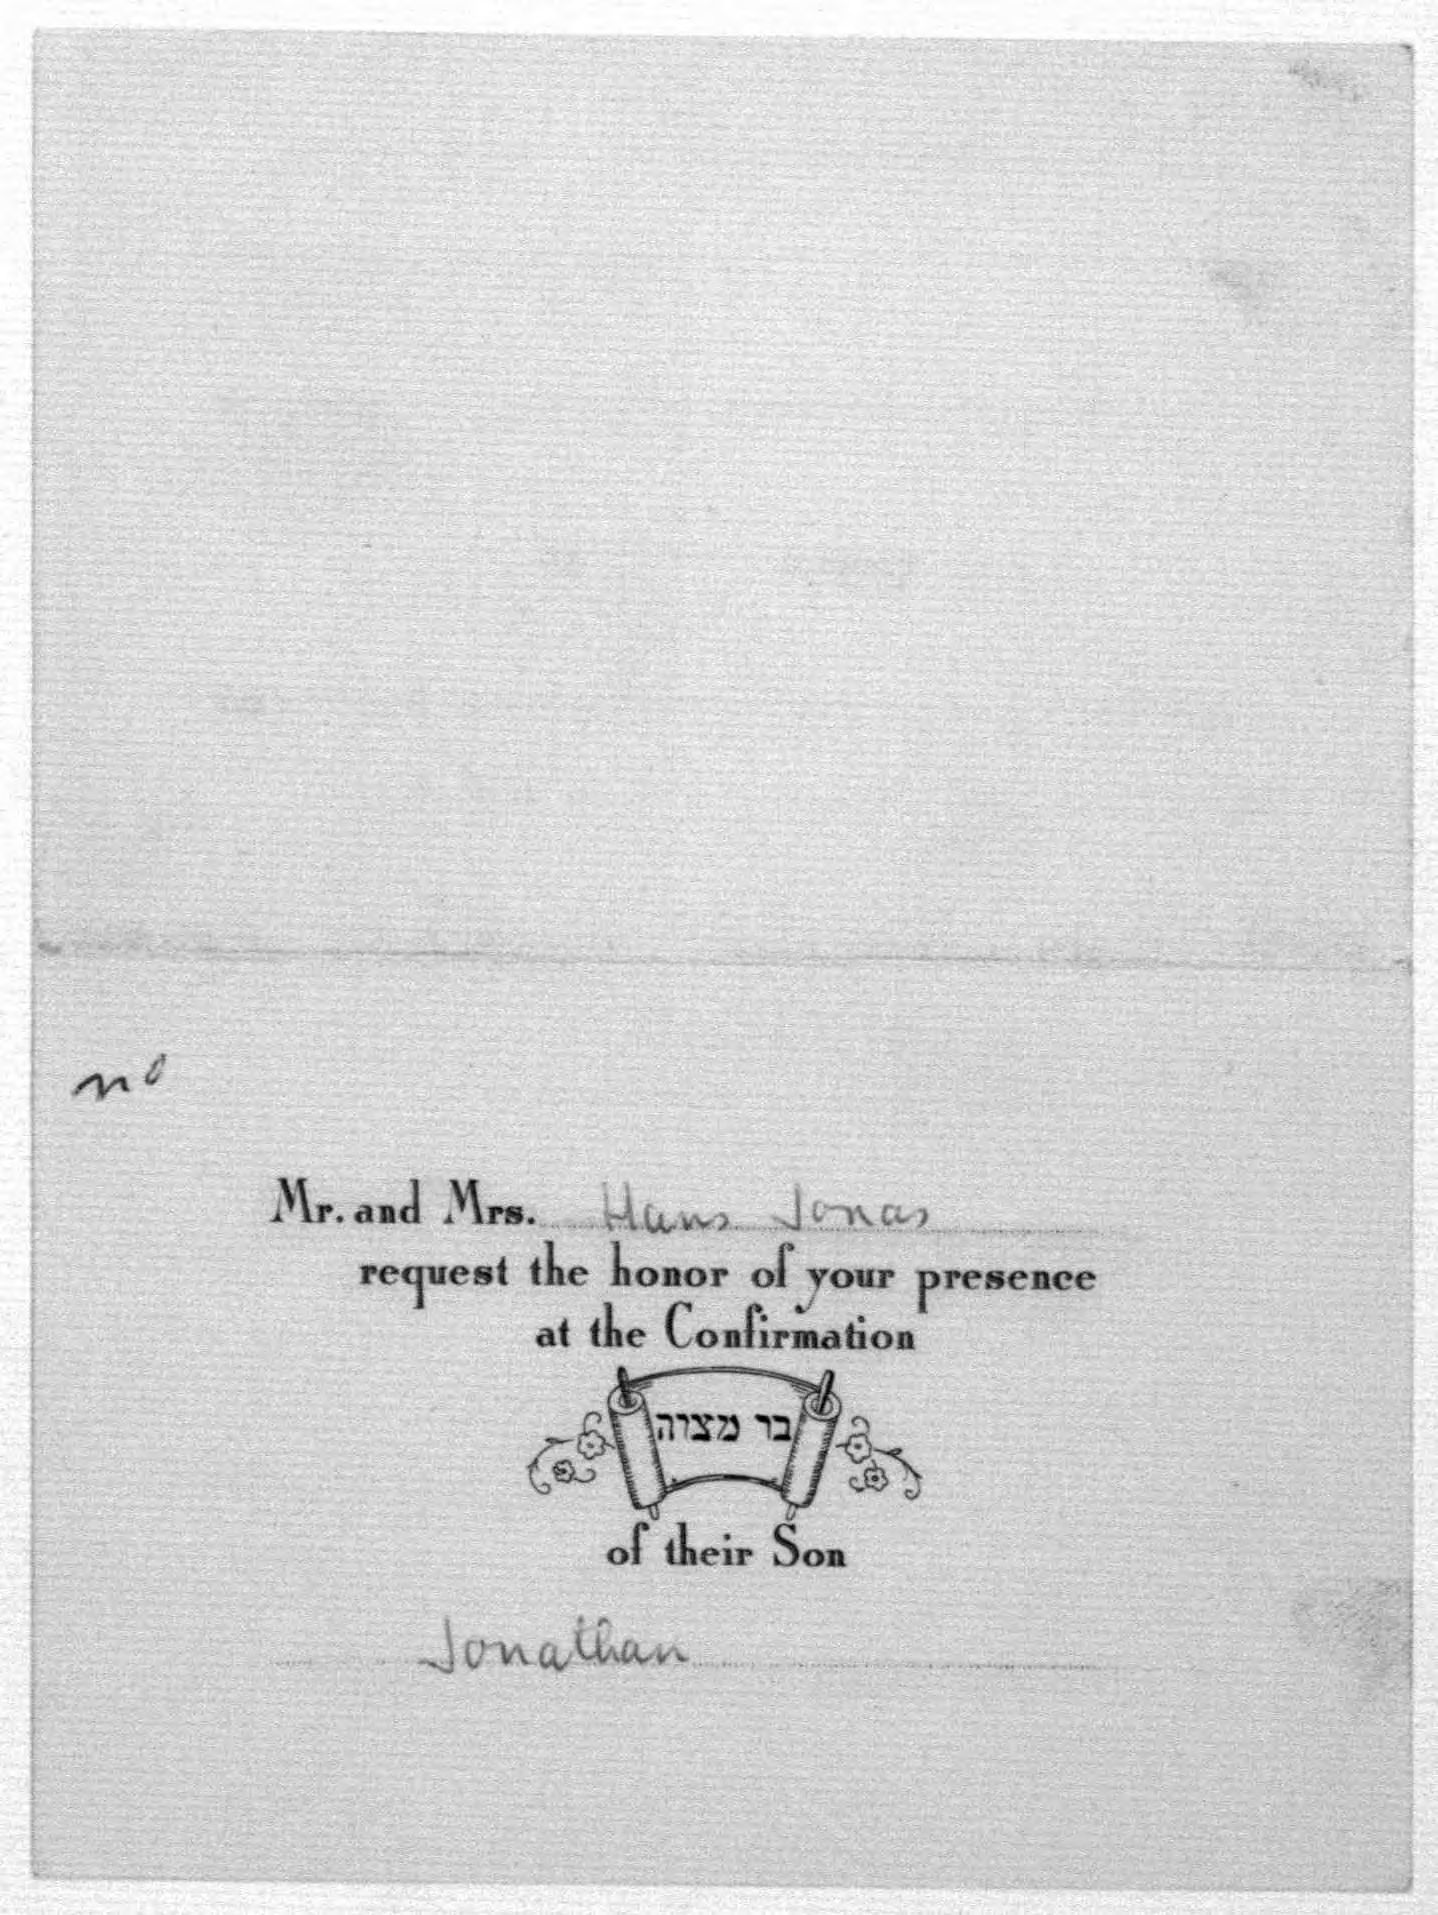 no
Mr. and Mrs. Hans Jonas
request the honor of your presence
at the Confirmation
בר מצוה
of their Son
Jonathan